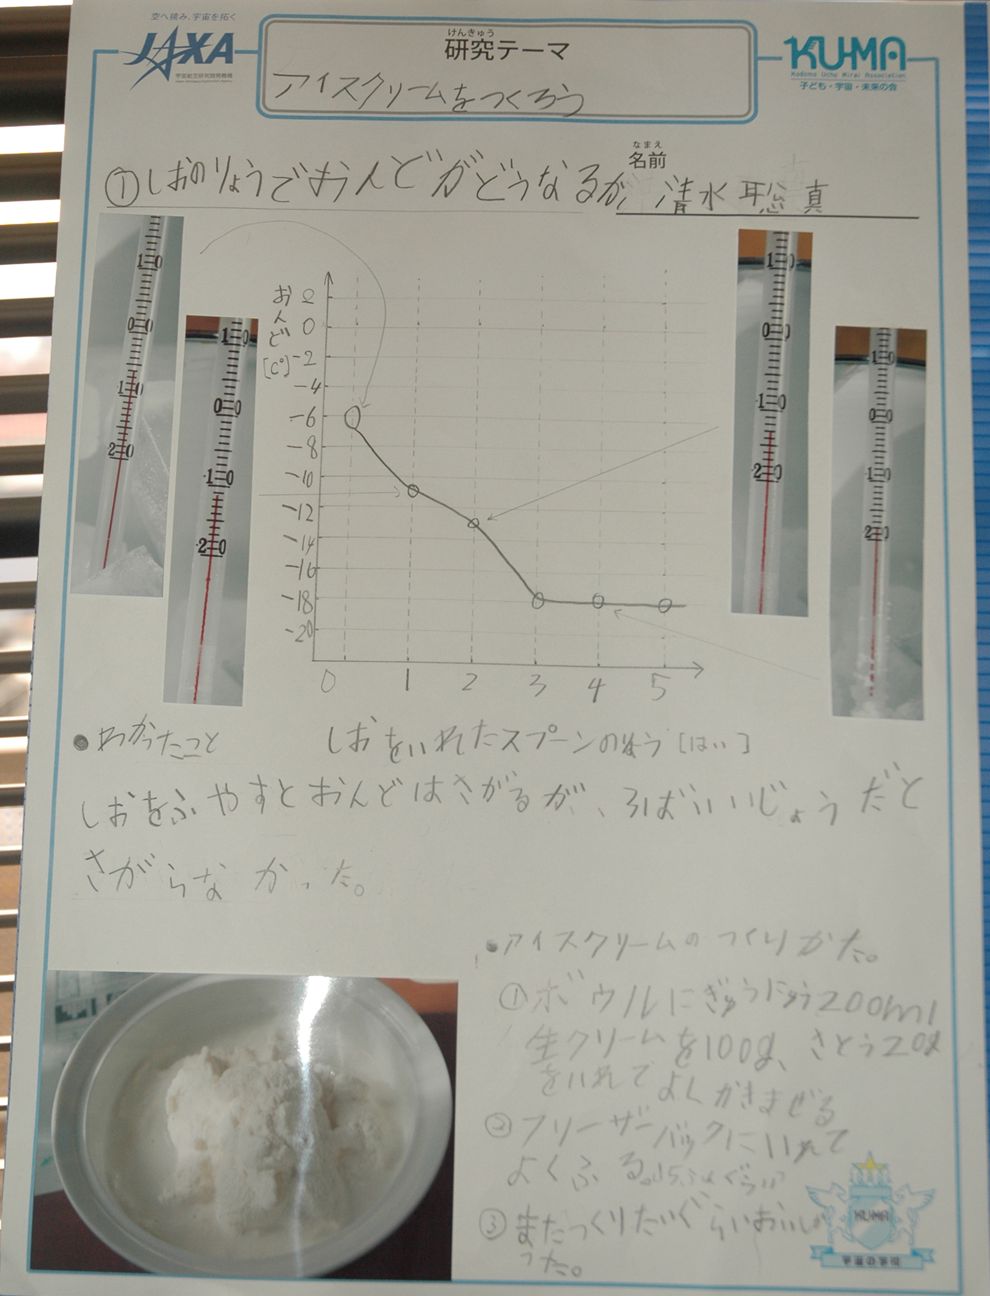 空へ挑み、宇宙を拓く
JAXA
宇宙航空研究開発機構
けんきゅう
研究テーマ
アイスクリームをつくろう
KU-MA
Kodomo Uchu Mirai Association
子ども・宇宙・未来の会
なまえ
名前
清水 聡真
①しおのりょうでおんどがどうなるか
おんど
[C°]
2
0
-2
-4
-6
-8
-10
-12
-14
-16
-18
-20
0 1 2 3 4 5
しおをいれたスプーンのりょう[はい]
●わかったこと
しおをふやすとおんどはさがるが、3ばいいじょうだと
さがらなかった。
●アイスクリームのつくりかた。
①ボウルにぎゅうにゅう200ml
生クリームを100g、さとう20g
をいれてよくかきまぜる
②フリーザーバックにいれて
よくふる。15ふんぐらい
③またつくりたいぐらいおいしか
った。
KUMA